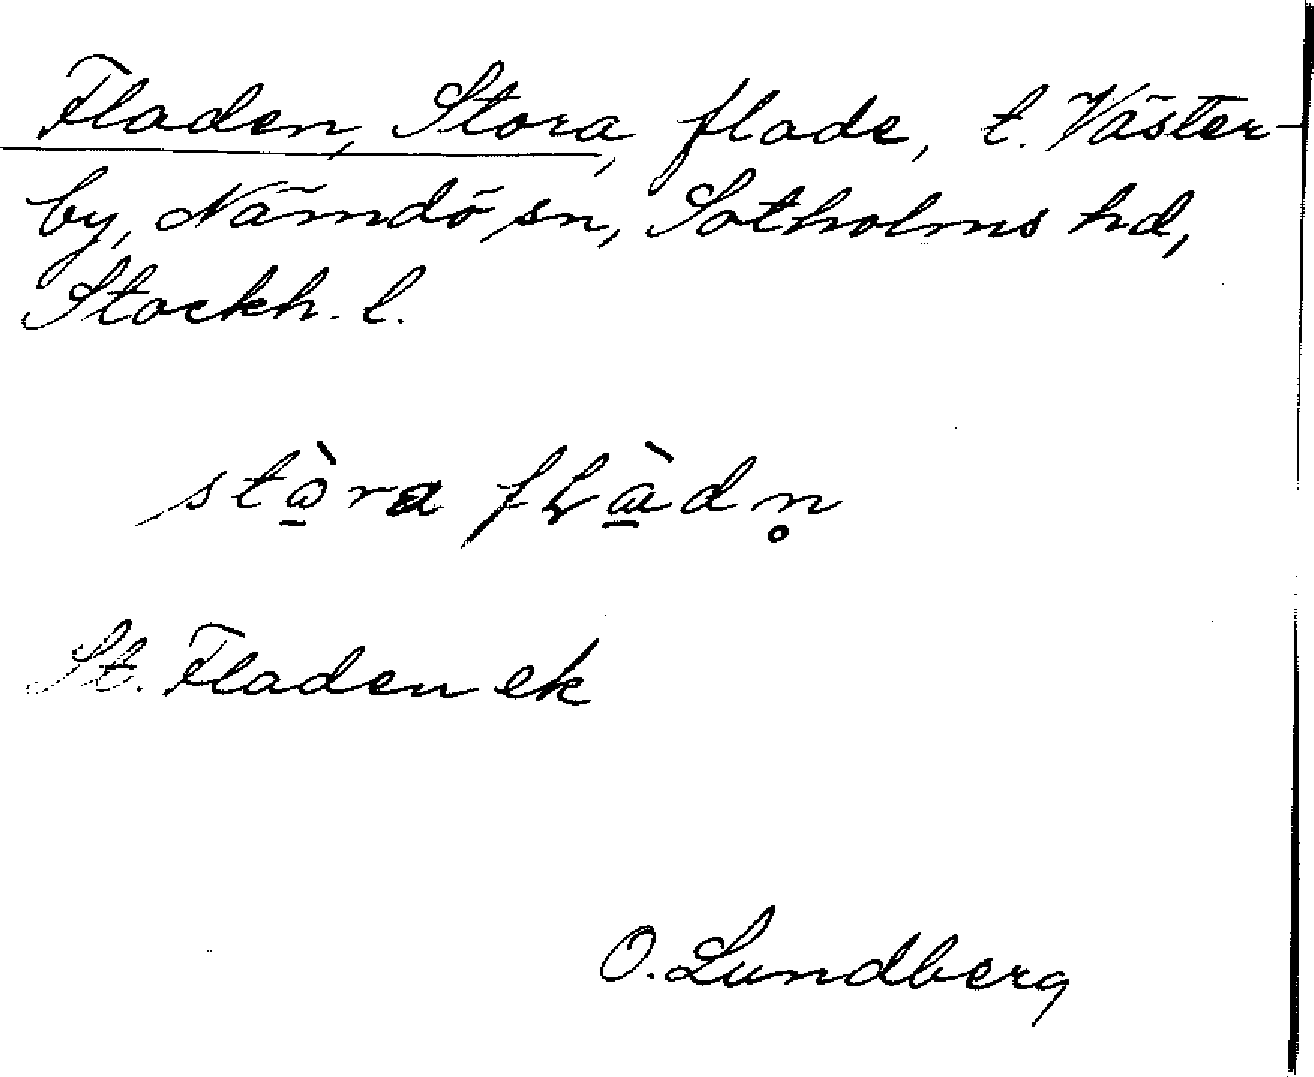 Fladen, Stora, flade, t. Väster-
by, Nämdö sn, Sotholms hd,
Stockh. l.
stⱥ̀ra fḷⱥ̀dn̥
St. Fladen ek
O. Lundberg